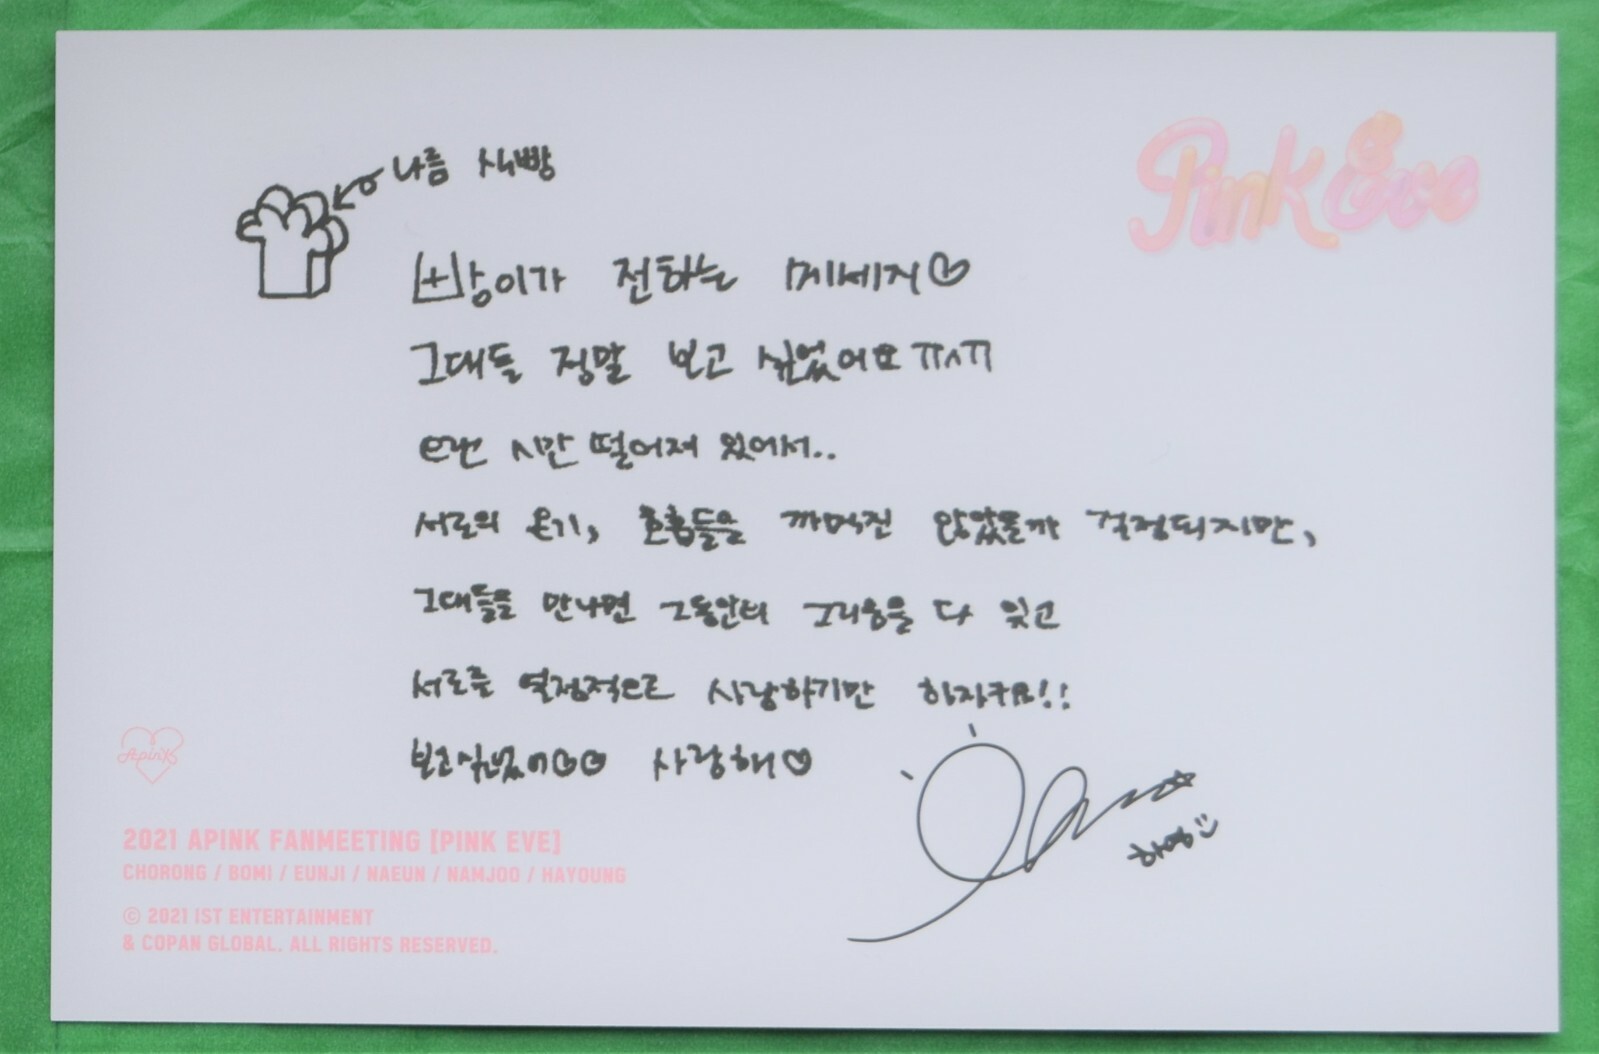 나름 식빵
Pink Eve
빵이가 전하는 메세지♡
그대들 정말 보고 싶었어요ㅠㅅㅠ
오랜 시간 떨어져 있어서..
서로의 온기, 호흡들을 까먹진 않았을까 걱정되지만,
그대들을 만나면 그동안의 그리움을 다 잊고
서로를 열정적으로 사랑하기만 하자구요!!
보고싶었어♡♡ 사랑해♡
하영
Apink
2021 APINK FANMEETING [PINK EVE]
CHORONG / BOMI / EUNJI / NAEUN / NAMJOO / HAYOUNG
© 2021 IST ENTERTAINMENT
& COPAN GLOBAL. ALL RIGHTS RESERVED.